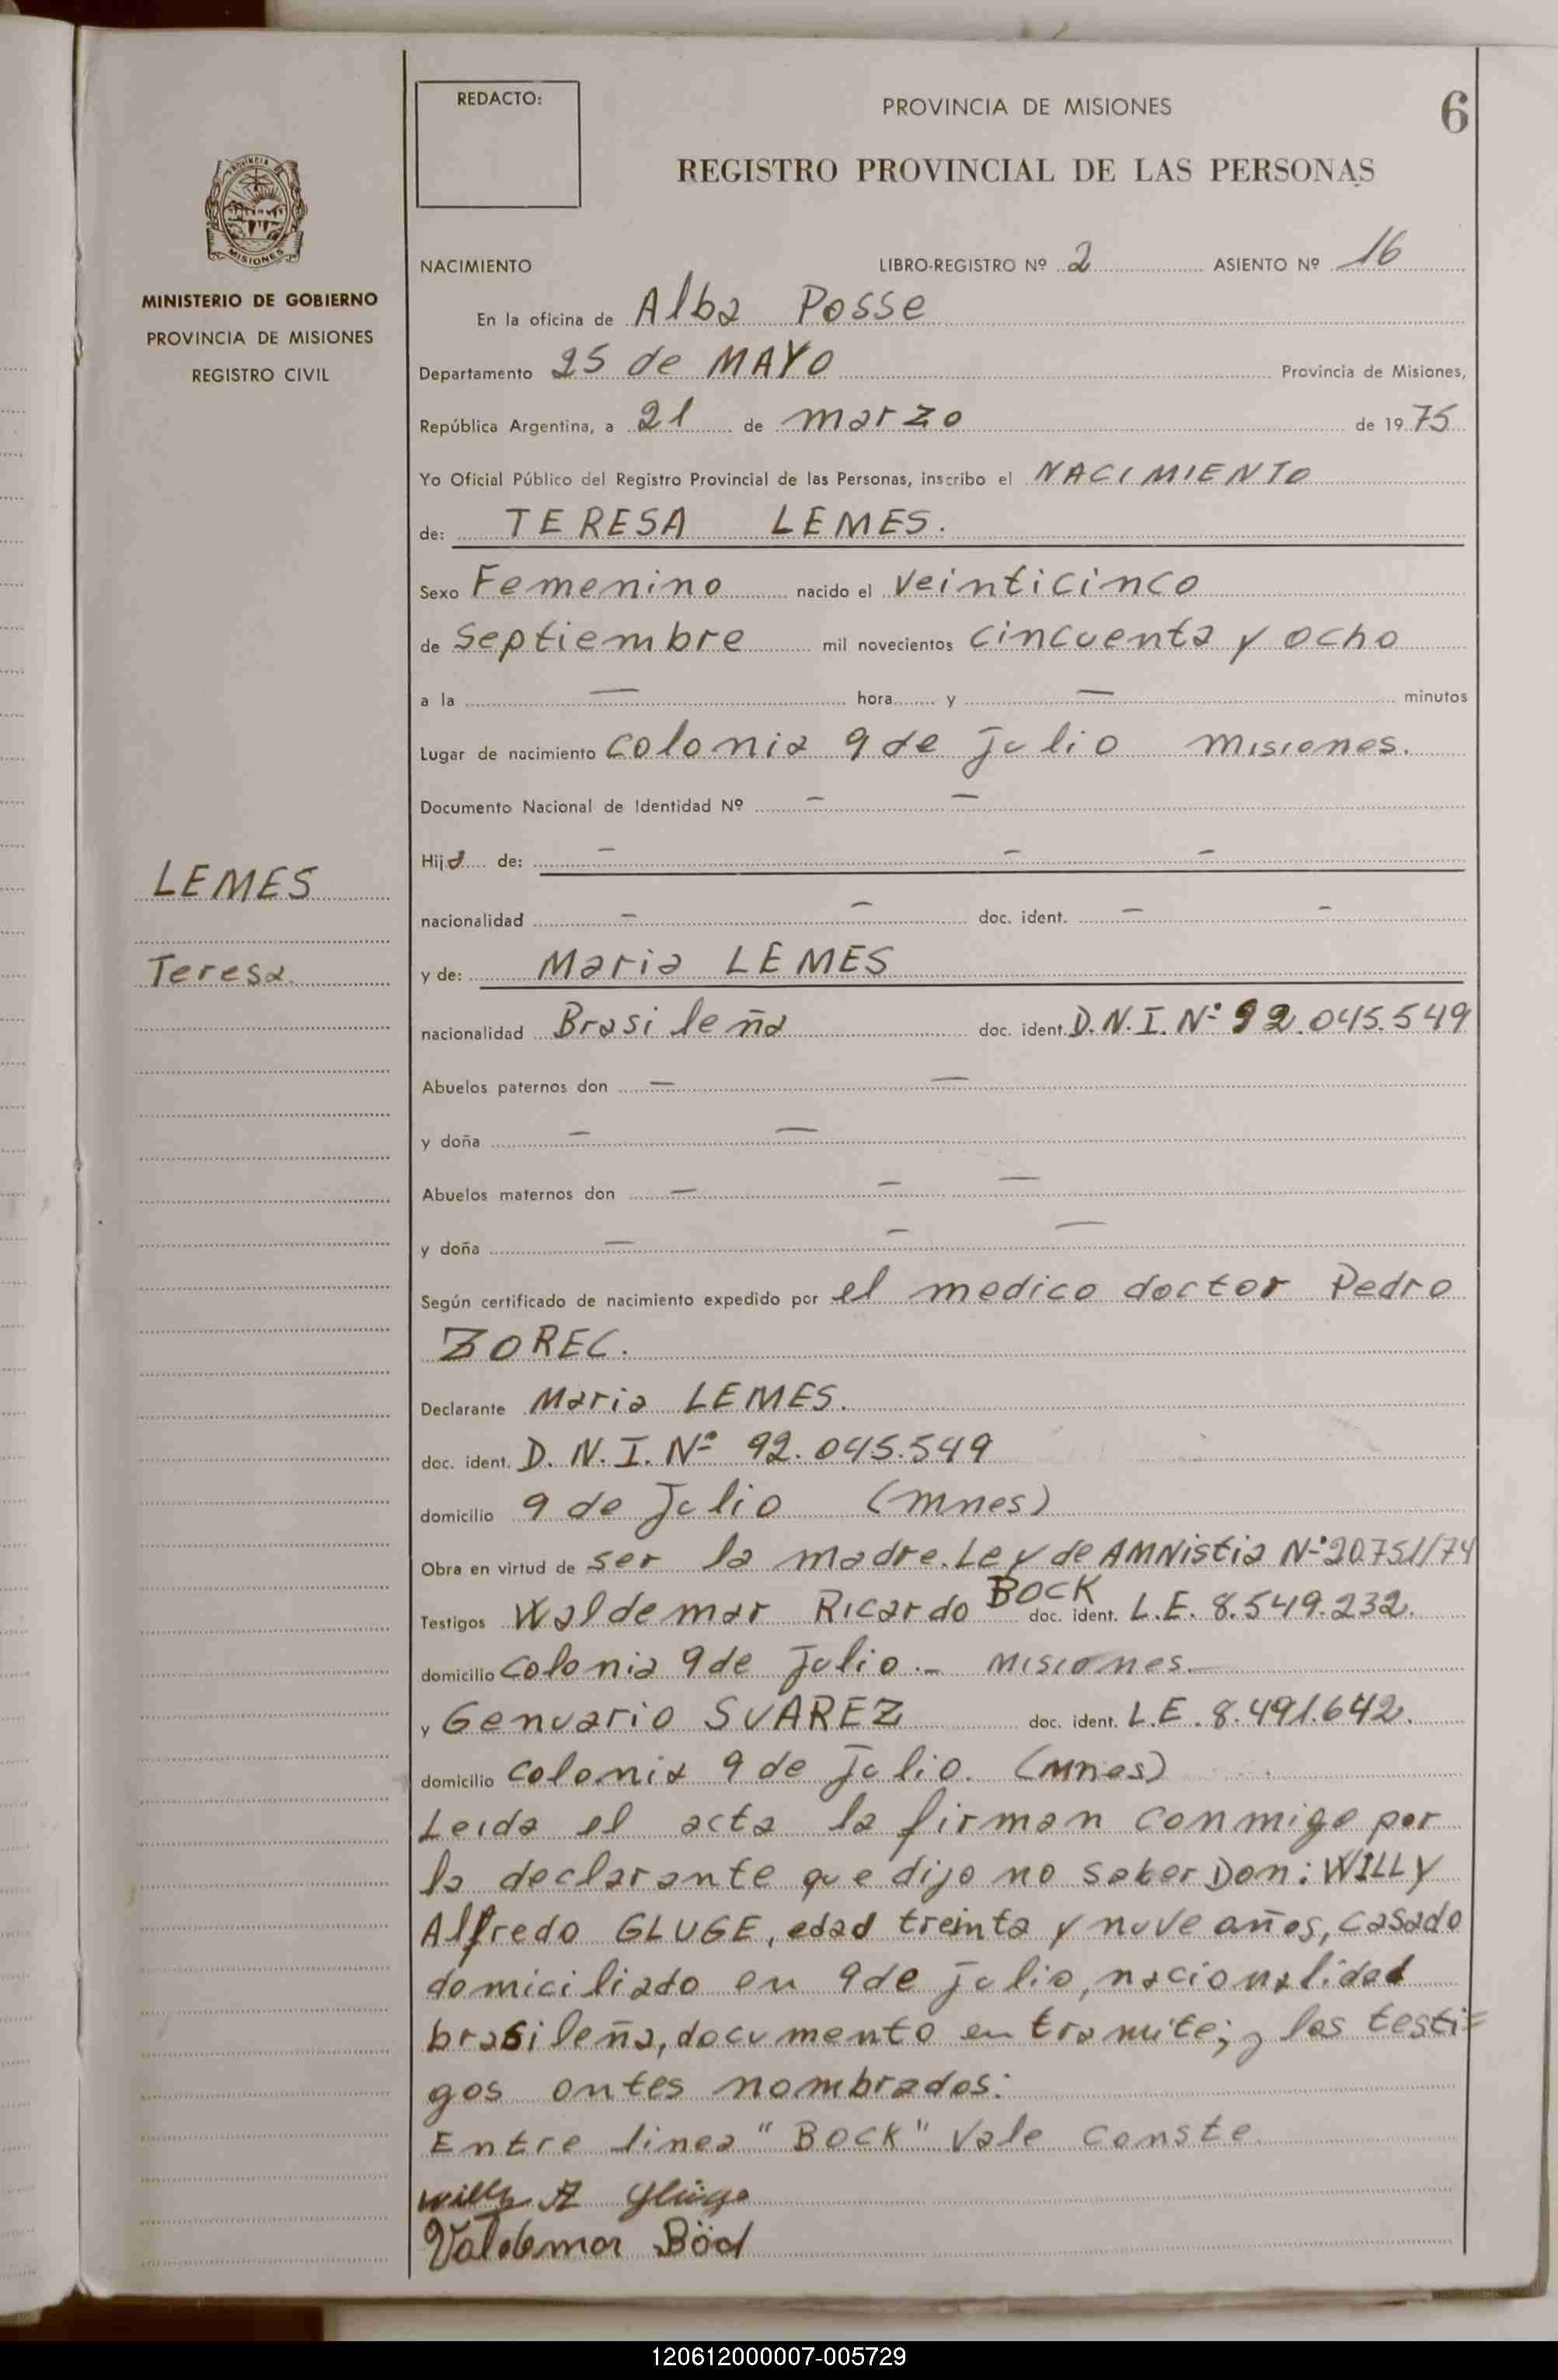 REDACTO:
PROVINCIA DE MISIONES
6
REGISTRO PROVINCIAL DE LAS PERSONAS
PROVINCIA DE
MISIONES
MINISTERIO DE GOBIERNO
PROVINCIA DE MISIONES
REGISTRO CIVIL
LEMES
Teresa.
NACIMIENTO LIBRO-REGISTRO Nº 2 ASIENTO Nº 16
En la oficina de Alba Posse
Departamento 25 de MAYO Provincia de Misiones,
República Argentina, a 21 de marzo de 1975
Yo Oficial Público del Registro Provincial de las Personas, inscribo el NACIMIENTO
de: TERESA LEMES.
Sexo Femenino nacido el veinticinco
de septiembre mil novecientos cincuenta y ocho
a la — hora y — minutos
Lugar de nacimiento colonia 9 de julio misiones.
Documento Nacional de Identidad Nº – –
Hija de: – – –
nacionalidad – – doc. ident. – –
y de: Maria LEMES
nacionalidad Brasileña doc. ident. D.N.I. Nº 92.045.549
Abuelos paternos don — —
y doña – —
Abuelos maternos don – – —
y doña — – —
Según certificado de nacimiento expedido por el medico doctor Pedro
ZOREC.
Declarante Maria LEMES.
doc. ident. D.N.I. Nº 92.045.549
domicilio 9 de julio (mnes)
Obra en virtud de ser la madre. Ley de AMNistia Nº 20751/74
Testigos Waldemar Ricardo BOCK doc. ident. L.E. 8.549.232.
domicilio colonia 9 de julio.– misiones.
y Genuario SUAREZ doc. ident. L.E. 8.491.642.
domicilio colonia 9 de julio. (mnes)
Leida el acta la firman conmigo por
la declarante que dijo no saber Don: WILLY
Alfredo GLUGE, edad treinta y nuve años, casado
domiciliado en 9 de julio, nacionalidad
brasileña, documento en tramite; y los testi=
gos antes nombrados:
Entre linea "BOCK" Vale conste
Willy A Glüge
Valdemar Böck
120612000007-005729